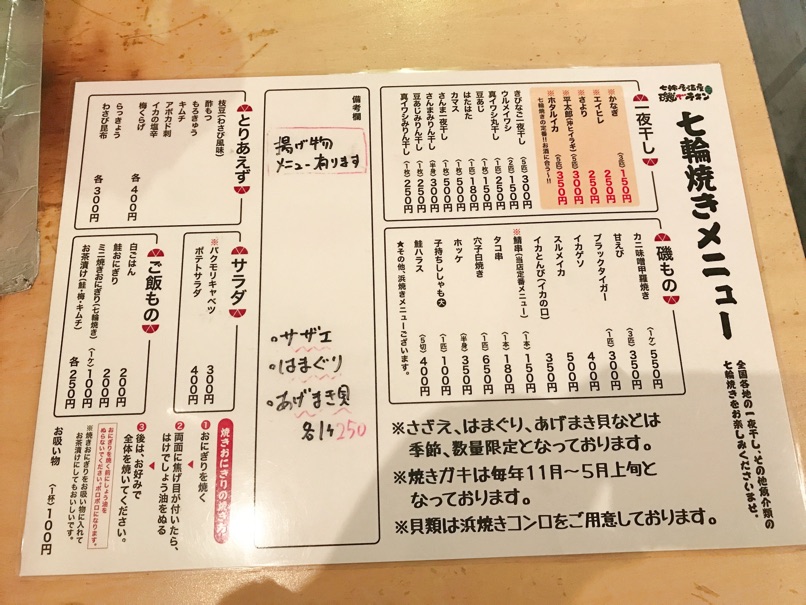 七輪焼きメニュー
全国各地の一夜干し、その他魚介類の
七輪焼きをお楽しみくださいませ。
一夜干し
※かなぎ (3匹) 150円
※エイヒレ 250円
※さより 250円
※平太郎(沖ヒイラギ) (3匹) 300円
※ホタルイカ (3匹) 350円
七輪焼きの定番!!お酒に合う〜!!
きびなご一夜干し (5匹) 300円
ウルメイワシ (2匹) 150円
真イワシ丸干し (1匹) 250円
豆あじ (1枚) 150円
はたはた (1匹) 180円
カマス (1枚) 500円
さんま一夜干し (1枚) 500円
さんまみりん干し (半身) 300円
豆あじみりん干し (1枚) 250円
真イワシみりん干し (1枚) 250円
磯もの
カニ味噌甲羅焼き (1ケ) 550円
甘えび (3匹) 350円
ブラックタイガー (1匹) 300円
イカゲソ 400円
スルメイカ 500円
イカとんび(イカの口) 350円
※鯖串(当店定番メニュー) (1本) 150円
タコ串 (1本) 180円
穴子白焼き (1匹) 650円
ホッケ (半身) 350円
子持ちししゃも大 (1匹) 100円
鮭ハラス (5切) 400円
★その他、浜焼きメニューございます。
備考欄
揚げ物
メニュー有ります
・サザエ
・はまぐり
・あげまき貝
各1ケ250
とりあえず
枝豆(わさび風味)
酢もつ
もろきゅう
キムチ
アボカド刺
イカの塩辛
梅くらげ
各400円
らっきょう
わさび昆布
各300円
サラダ
※バクモリキャベツ 300円
ポテトサラダ 400円
ご飯もの
白ごはん 200円
鮭おにぎり 200円
ミニ焼きおにぎり(七輪焼き) (1ケ) 100円
お茶漬け(鮭・梅・キムチ) 各250円
焼きおにぎりの焼き方
❶おにぎりを焼く
❷両面に焦げ目が付いたら、
はけでしょう油をぬる
❸後は、お好みで
全体を焼いてください。
おにぎりを焼く前にしょう油を
ぬらないでください。ボロボロになります。
※焼きおにぎりをお吸い物に入れて
お茶漬けにしてもおいしいです。
お吸い物 (1杯) 100円
※さざえ、はまぐり、あげまき貝などは
季節、数量限定となっております。
※焼きガキは毎年11月〜5月上旬と
なっております。
※貝類は浜焼きコンロをご用意しております。